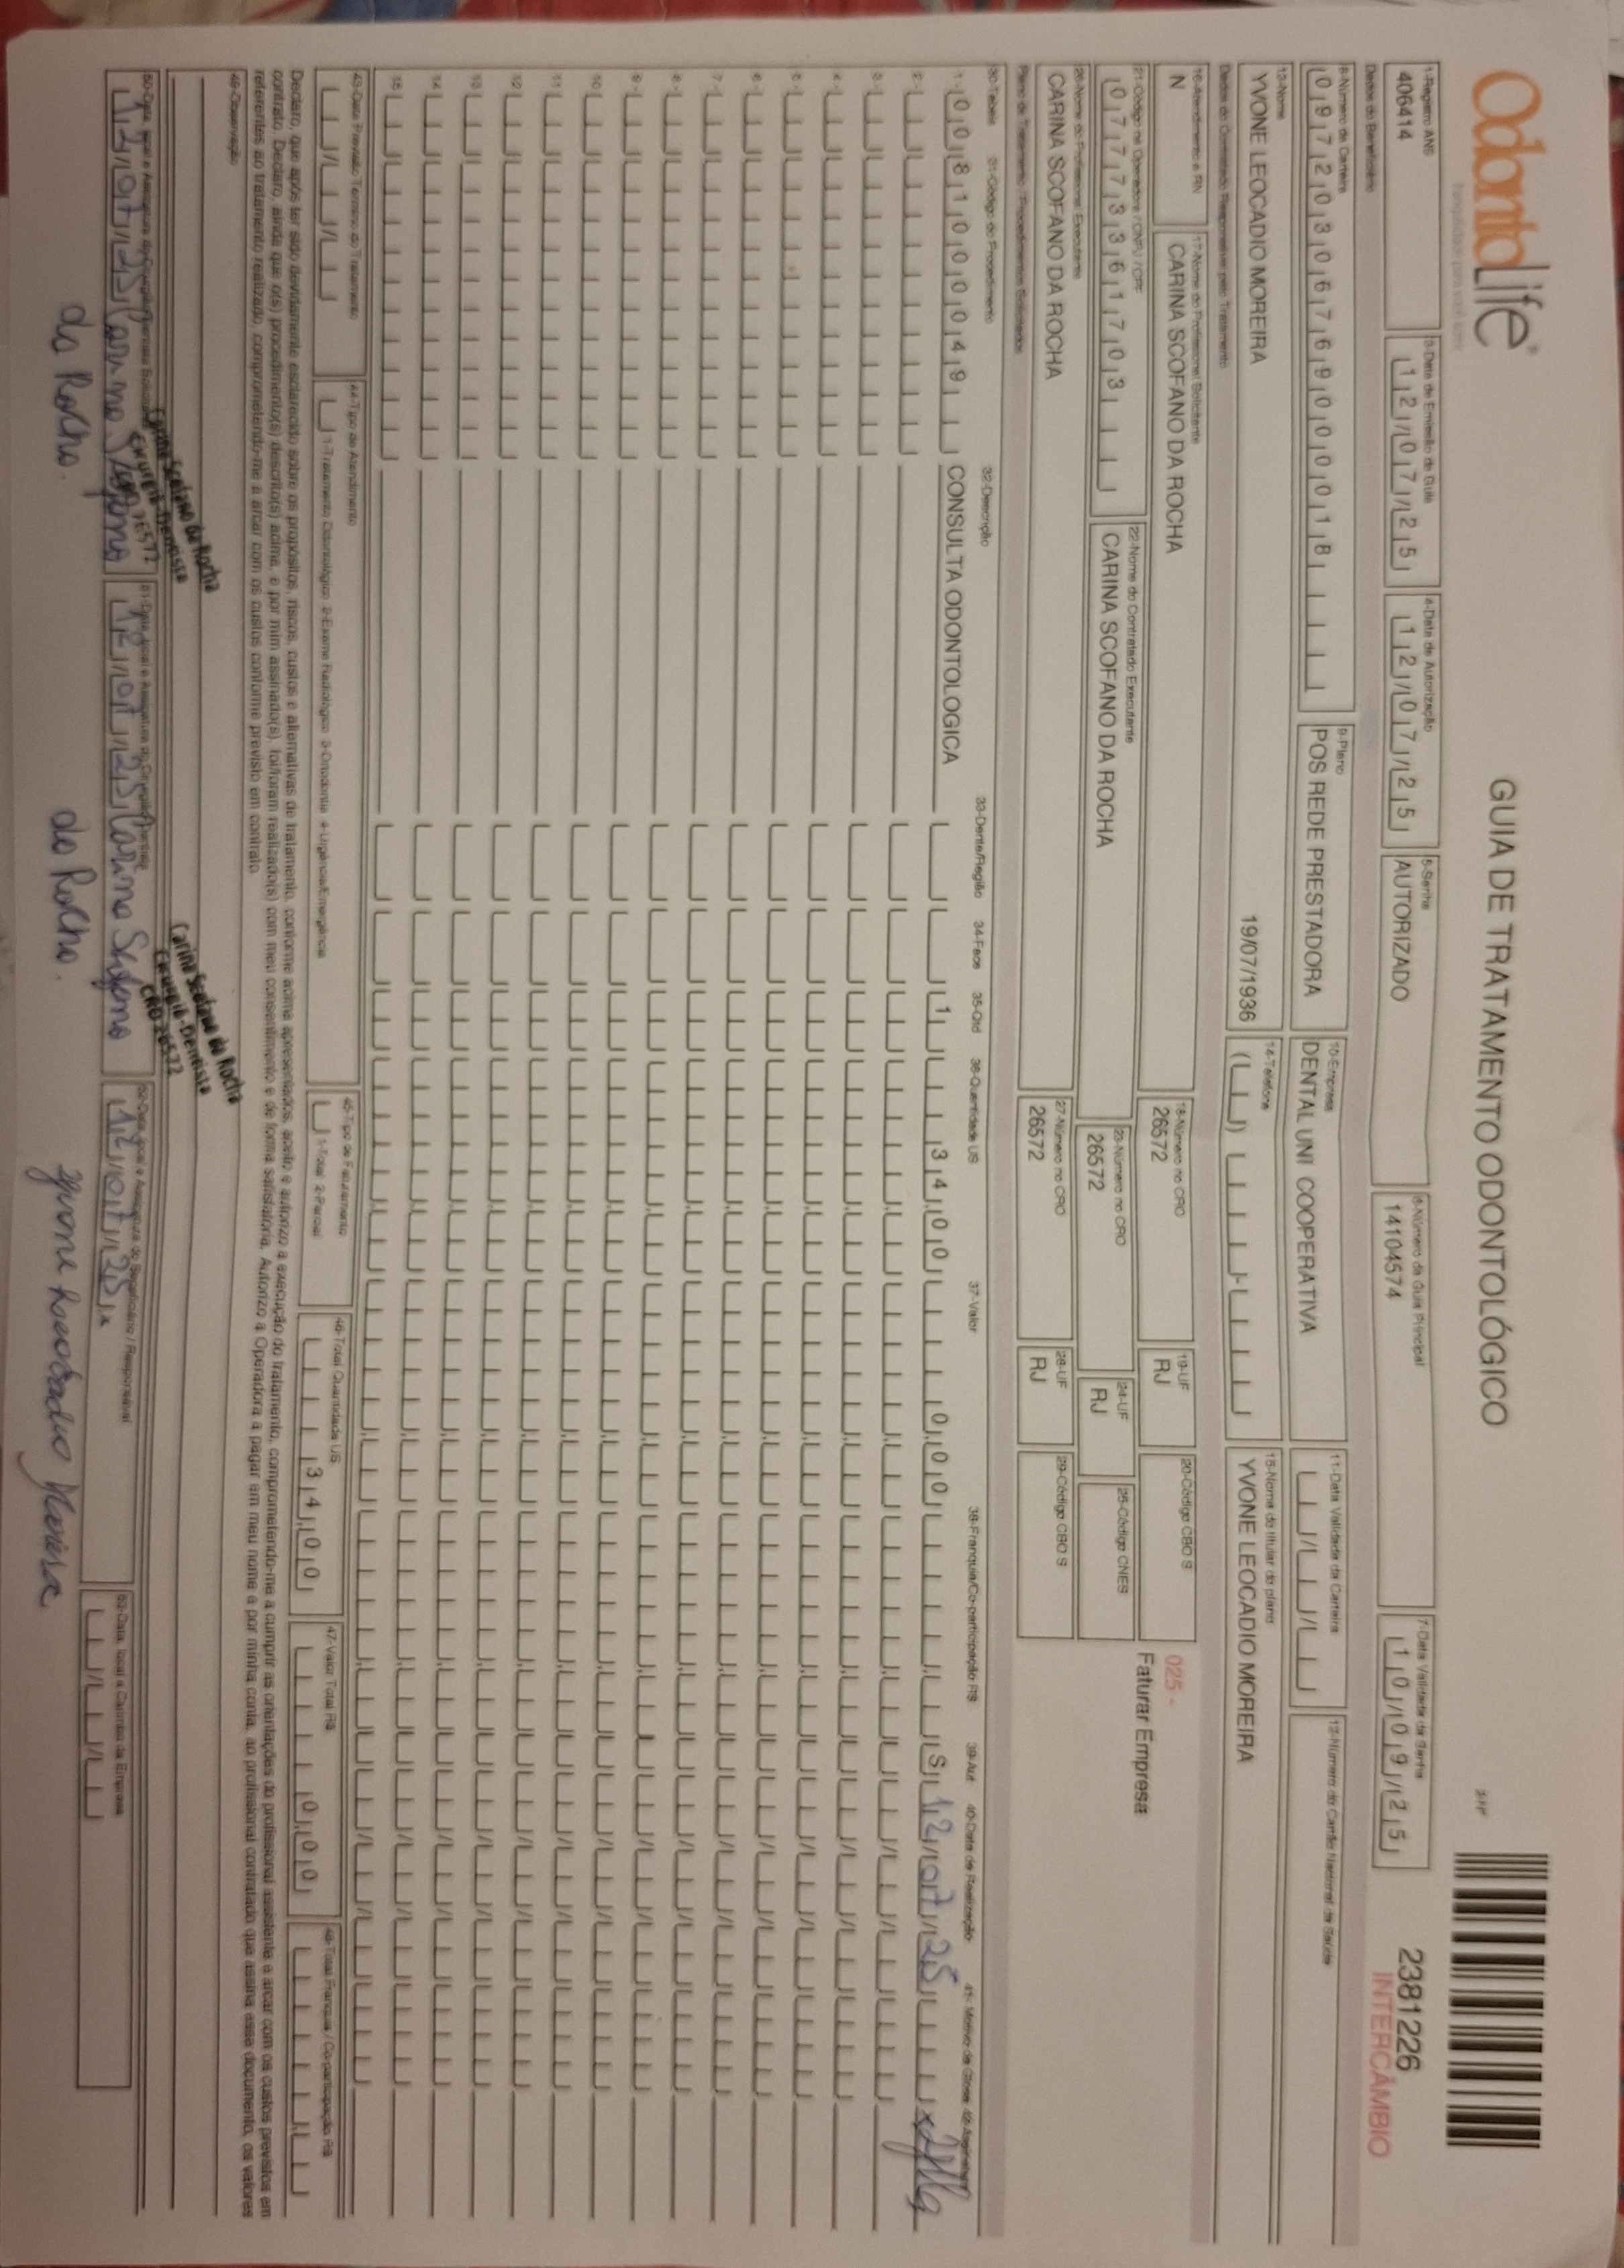 OdontoLife®
GUIA DE TRATAMENTO ODONTOLÓGICO
2381226
INTERCÂMBIO
1-Registro ANS
406414
3-Data de Emissão da Guia
12/07/25
4-Data de Autorização
12/07/25
5-Senha
AUTORIZADO
6-Número da Guia Principal
14104574
7-Data Validade da Senha
10/09/25
Dados do Beneficiário
8-Número da Carteira
09720306769000018
9-Plano
POS REDE PRESTADORA
10-Empresa
DENTAL UNI COOPERATIVA
11-Data Validade da Carteira
12-Número do Cartão Nacional de Saúde
13-Nome
YVONE LEOCADIO MOREIRA
19/07/1936
14-Telefone
15-Nome do titular do plano
YVONE LEOCADIO MOREIRA
Dados do Contratado Responsável pelo Tratamento
16-Atendimento a RN
N
17-Nome do Profissional Solicitante
CARINA SCOFANO DA ROCHA
18-Número no CRO
26572
19-UF
RJ
20-Código CBO S
025 -
Faturar Empresa
21-Código na Operadora / CNPJ / CPF
07773361703
22-Nome do Contratado Executante
CARINA SCOFANO DA ROCHA
23-Número no CRO
26572
24-UF
RJ
25-Código CNES
26-Nome do Profissional Executante
CARINA SCOFANO DA ROCHA
27-Número no CRO
26572
28-UF
RJ
29-Código CBO S
Plano de Tratamento / Procedimentos Solicitados
30-Tabela 31-Código do Procedimento 32-Descrição 33-Dente/Região 34-Face 35-Qtd 36-Quantidade US 37-Valor 38-Franquia/Co-participação R$ 39-Aut 40-Data de Realização 41-Motivo da Glosa 42-Assinatura
1- 00 81000049 CONSULTA ODONTOLOGICA 1 34,00 0,00 S 12/07/25
2-
3-
4-
5-
6-
7-
8-
9-
10
11
12
13
14
15
43-Data Previsão Término do Tratamento
44-Tipo de Atendimento
1-Tratamento Odontológico 2-Exame Radiológico 3-Ortodontia 4-Urgência/Emergência
45-Tipo de Faturamento
1-Total 2-Parcial
46-Total Quantidade US
34,00
47-Valor Total R$
0,00
48-Total Franquia / Co-participação R$
Declaro, que após ter sido devidamente esclarecido sobre os propósitos, riscos, custos e alternativas de tratamento, conforme acima apresentados, aceito e autorizo a execução do tratamento, comprometendo-me a cumprir as orientações do profissional assistente e arcar com os custos previstos em
contrato. Declaro, ainda que o(s) procedimento(s) descrito(s) acima, e por mim assinado(s), foi/foram realizado(s) com meu consentimento e de forma satisfatória. Autorizo a Operadora a pagar em meu nome e por minha conta, ao profissional contratado que assina esse documento, os valores
referentes ao tratamento realizado, comprometendo-me a arcar com os custos conforme previsto em contrato.
49-Observação
Carina Scofano da Rocha
Cirurgiã-Dentista
CRO 26572
Carina Scofano da Rocha
Cirurgiã-Dentista
CRO 26572
50-Data, local e Assinatura do Cirurgião-Dentista Solicitante
12/07/25 Carina Scofano
da Rocha.
51-Data, local e Assinatura do Cirurgião-Dentista
12/07/25 Carina Scofano
da Rocha.
52-Data, local e Assinatura do Beneficiário / Responsável
12/07/25 x
Yvone Leocadio Moreira
53-Data, local e Carimbo da Empresa